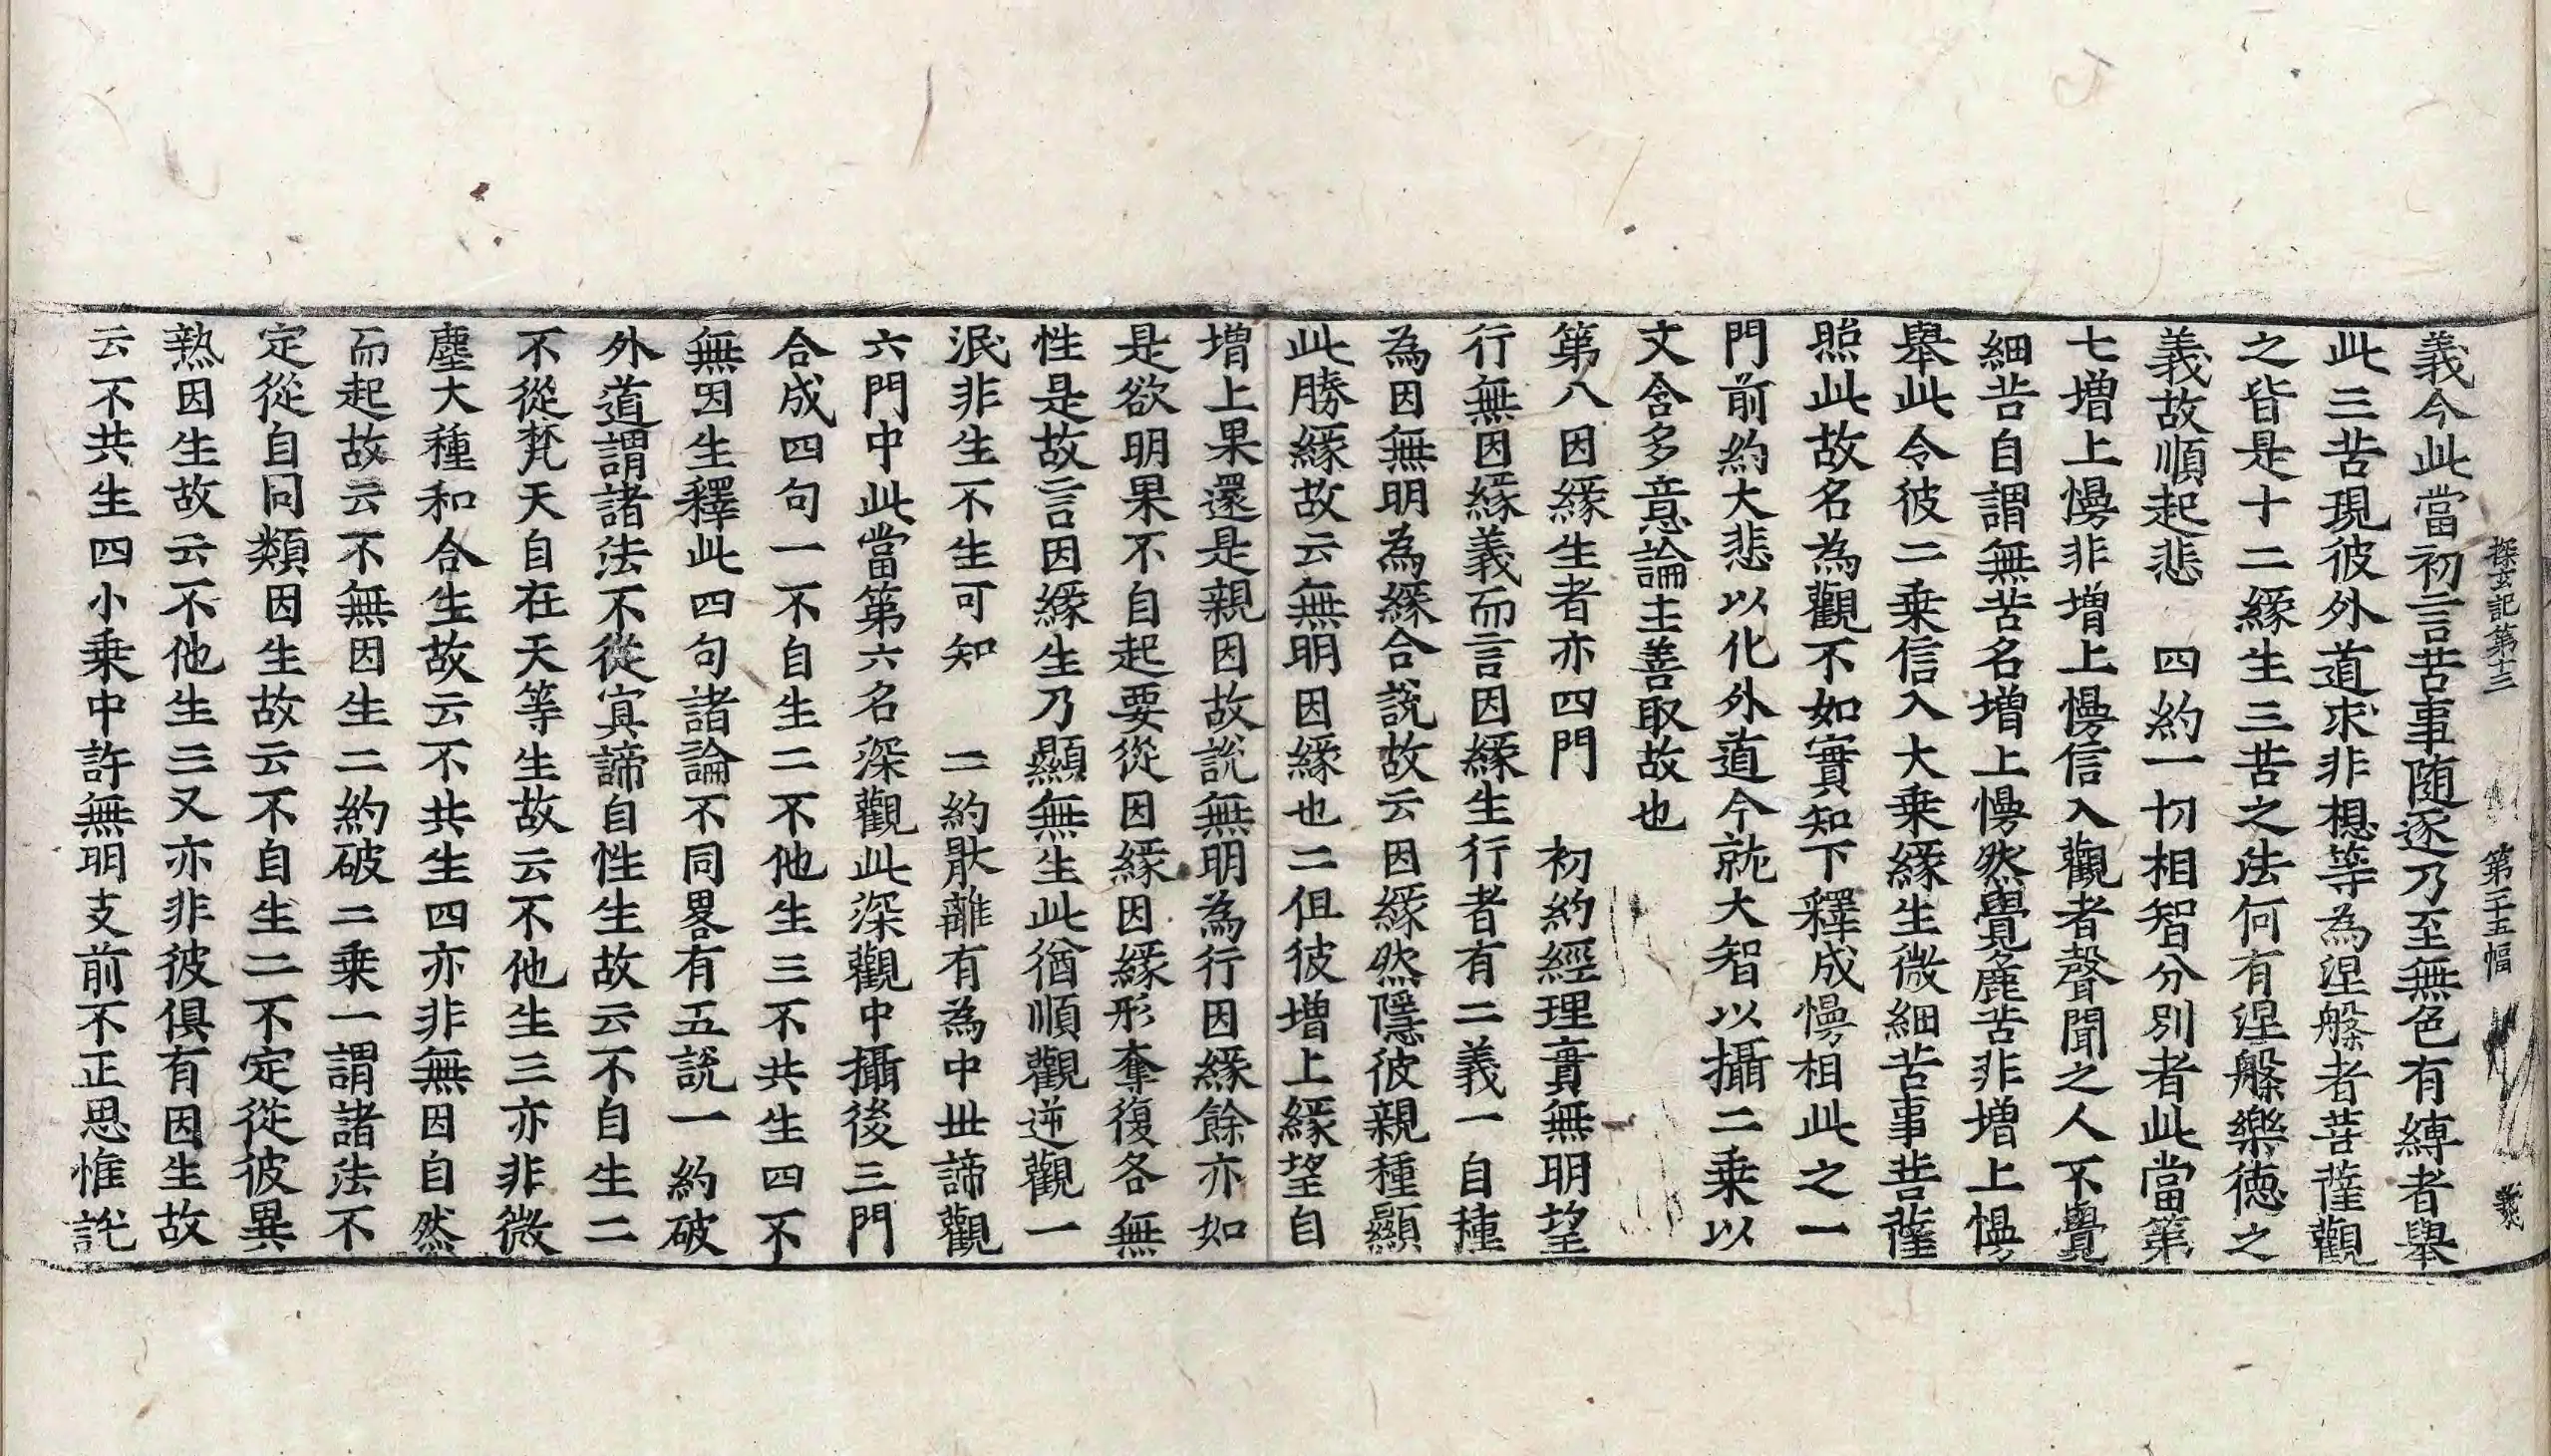 探玄記第十三 第二十五幅 義
義今此當初言苦事随逐乃至無色有縛者舉
此三苦現彼外道求非想等為涅槃者菩薩觀
之皆是十二縁生三苦之法何有涅槃樂徳之
義故順起悲 四約一切相智分別者此當第
七増上慢非増上慢信入觀者聲聞之人不覺
細苦自謂無苦名増上慢然覺麁苦非増上慢
舉此令彼二乗信入大乗縁生微細苦事菩薩
照此故名為觀不如實知下釋成慢相此之一
門前約大悲以化外道今就大智以攝二乗以
文含多意論主善取故也
第八因縁生者亦四門 初約經理實無明望
行無因縁義而言因縁生行者有二義一自種
為因無明為縁合説故云因縁然隱彼親種顯
此勝縁故云無明因縁也二但彼増上縁望自
増上果還是親因故説無明為行因縁餘亦如
是欲明果不自起要從因縁因縁形奪復各無
性是故言因縁生乃顯無生此猶順觀逆觀一
泯非生不生可知 二約猒離有為中丗諦觀
六門中此當第六名深觀此深觀中攝後三門
合成四句一不自生二不他生三不共生四不
無因生釋此四句諸論不同畧有五説一約破
外道謂諸法不從冥諦自性生故云不自生二
不從梵天自在天等生故云不他生三亦非微
塵大種和合生故云不共生四亦非無因自然
而起故云不無因生二約破二乗一謂諸法不
定從自同類因生故云不自生二不定從彼異
熟因生故云不他生三又亦非彼俱有因生故
云不共生四小乗中許無明支前不正思惟説